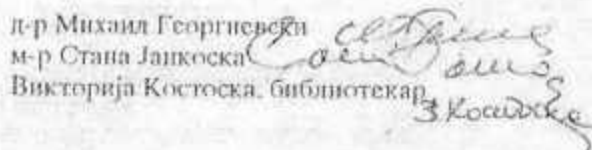 д-р Михаил Георгиевски
м-р Стана Јанкоска
Викторија Костоска, библиотекар